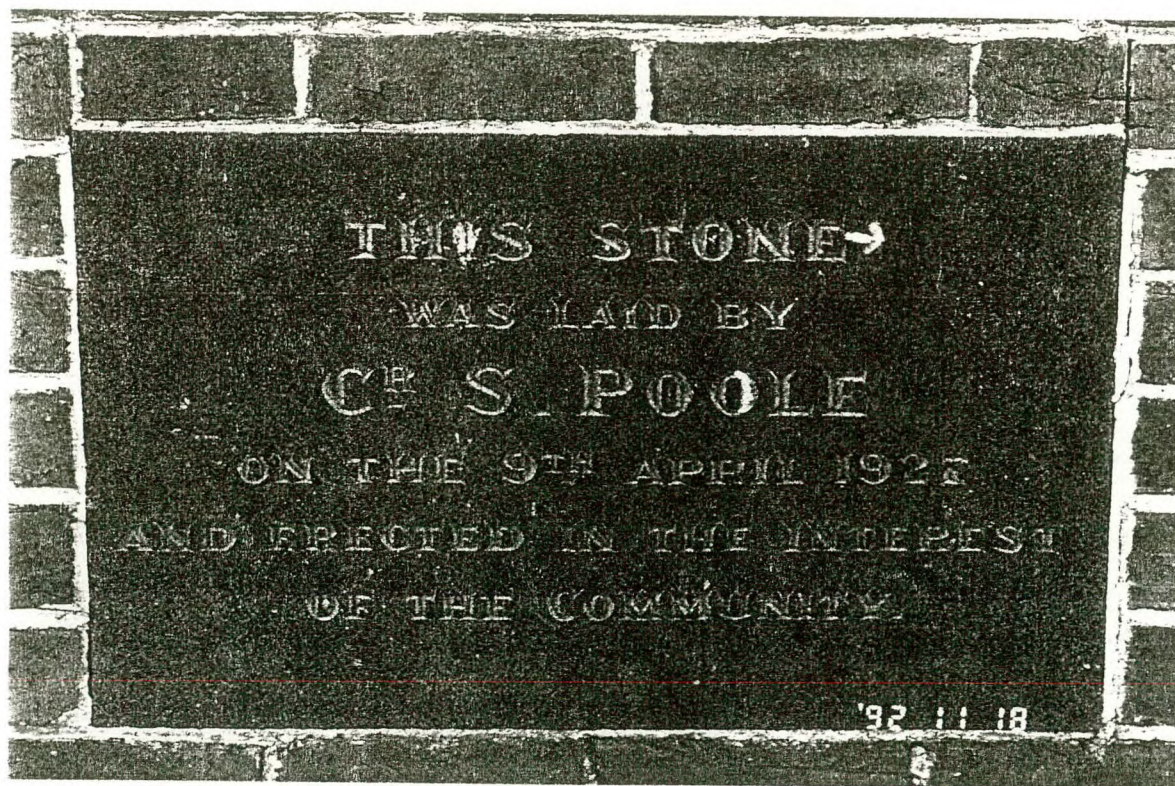 THIS STONE
WAS LAID BY
CR S. POOLE
ON THE 9TH APRIL 1927
AND ERECTED IN THE INTEREST
OF THE COMMUNITY.
'92 11 18